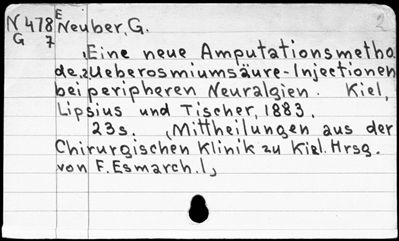 2
N 478 E Neuber, G.
G 7
Eine neue Amputationsmetho
de, 2, Ueberosmiumsäure-Injectionen
bei peripheren Neuralgien. Kiel,
Lipsius und Tischer, 1883.
23s. (Mittheilungen aus der
Chirurgischen Klinik zu Kiel. Hrsg.
von F. Esmarch. 1)